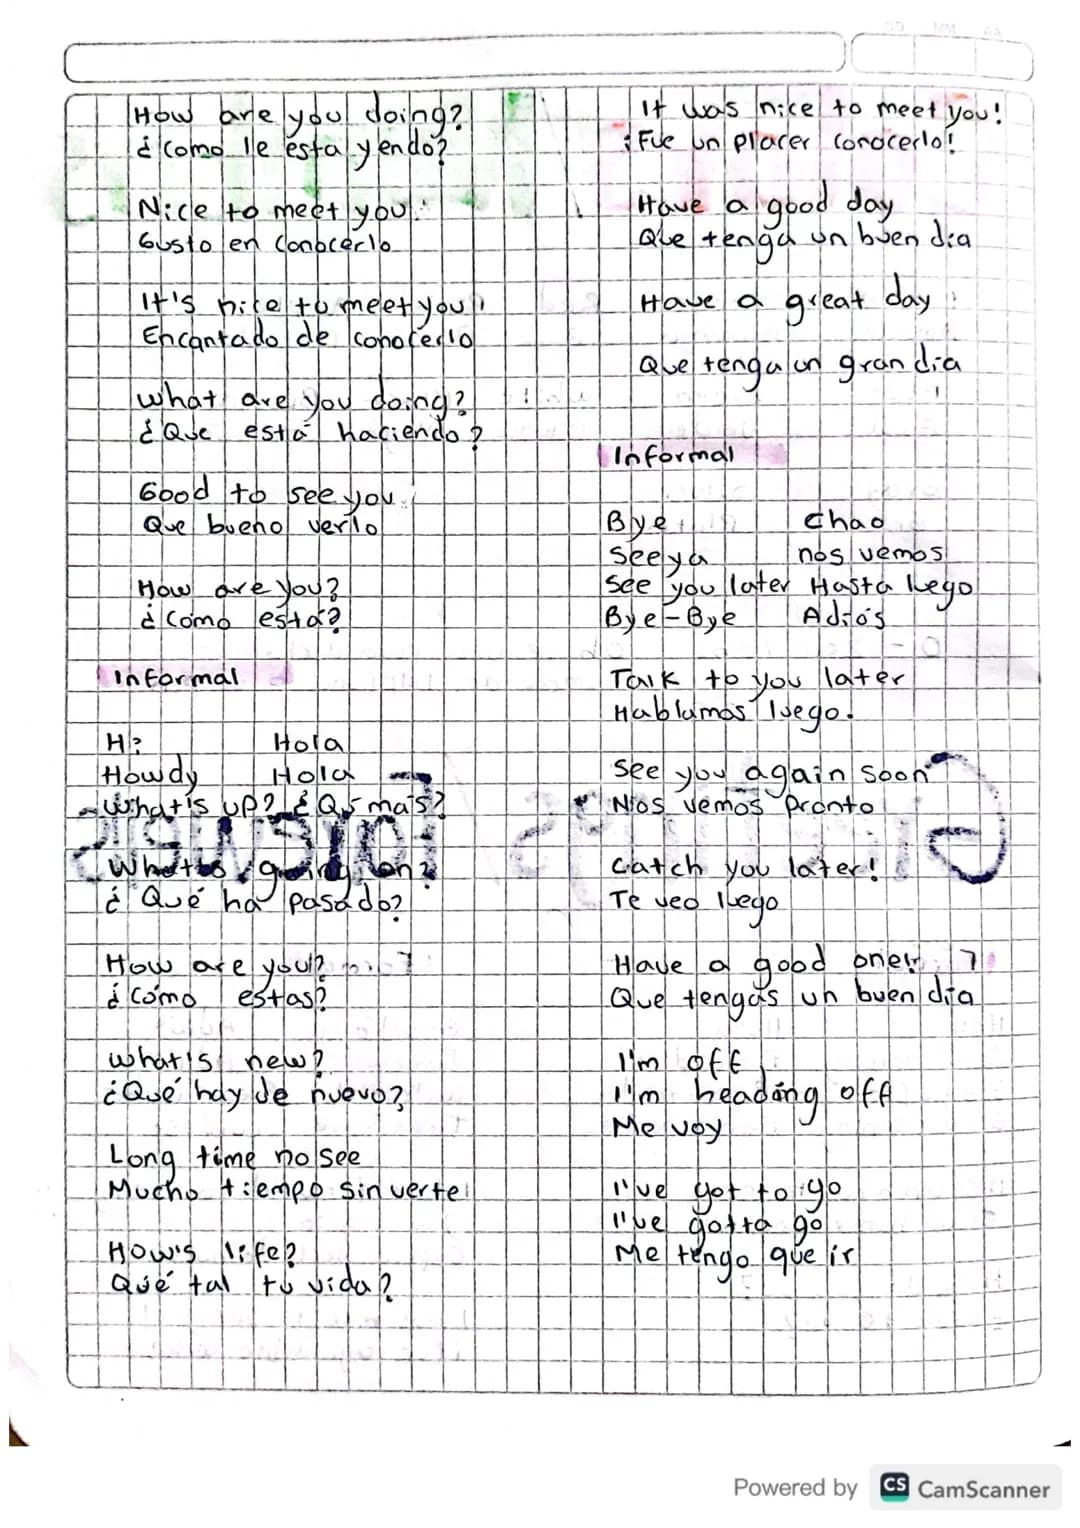 How are you doing?
¿como le esta yendo?
Nice to meet you.
Gusto en conocerlo
It's nice to meet you
Encantado de conocerlo
what are you doing?
¿Que está haciendo?
Good to see you
Que bueno verlo
How are you?
¿como está?
Informal
Hi? Hola
Howdy Hola
What's up? ¿Q's mas?
What's going on?
¿Qué ha pasado?
How are you?
¿cómo estas?
what's new?
¿Qué hay de nuevo?
Long time no see
Mucho tiempo sin verte
How's life?
Qué tal tu vida?
It was nice to meet you!
¡Fue un placer conocerlo!
Have a good day
Que tenga un buen dia
Have a great day
Que tenga un gran dia
Informal
Bye chao
See ya nos vemos
see you later Hasta luego
Bye-Bye Adiós
Talk to you later
Hablamos luego.
see you again soon
Nos vemos pronto
catch you later!
Te veo luego
Have a good one!
Que tengas un buen dia
I'm off
I'm heading off
Me voy
I've got to go
I've gotta go
Me tengo que ir
Powered by CS CamScanner